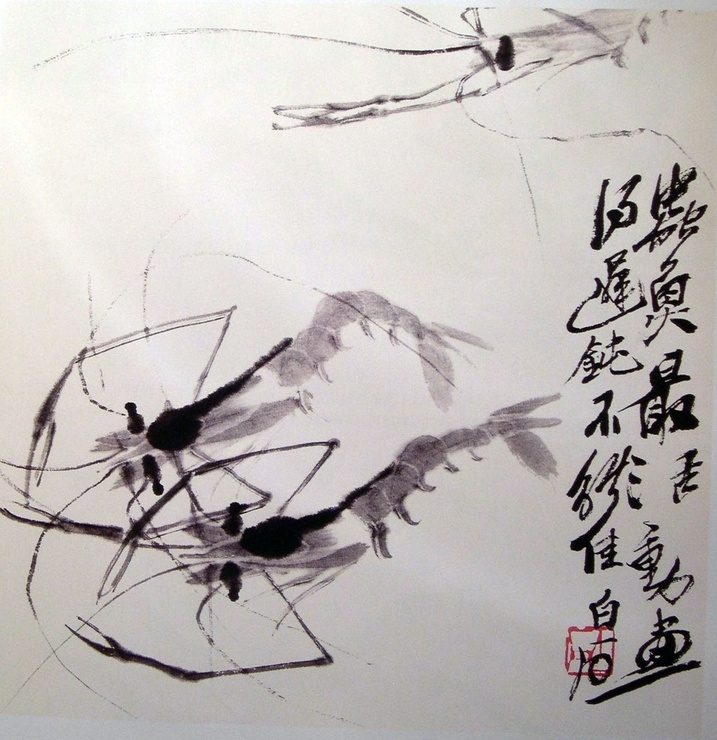 蟲魚最活動畫
得遲鈍不能佳白石